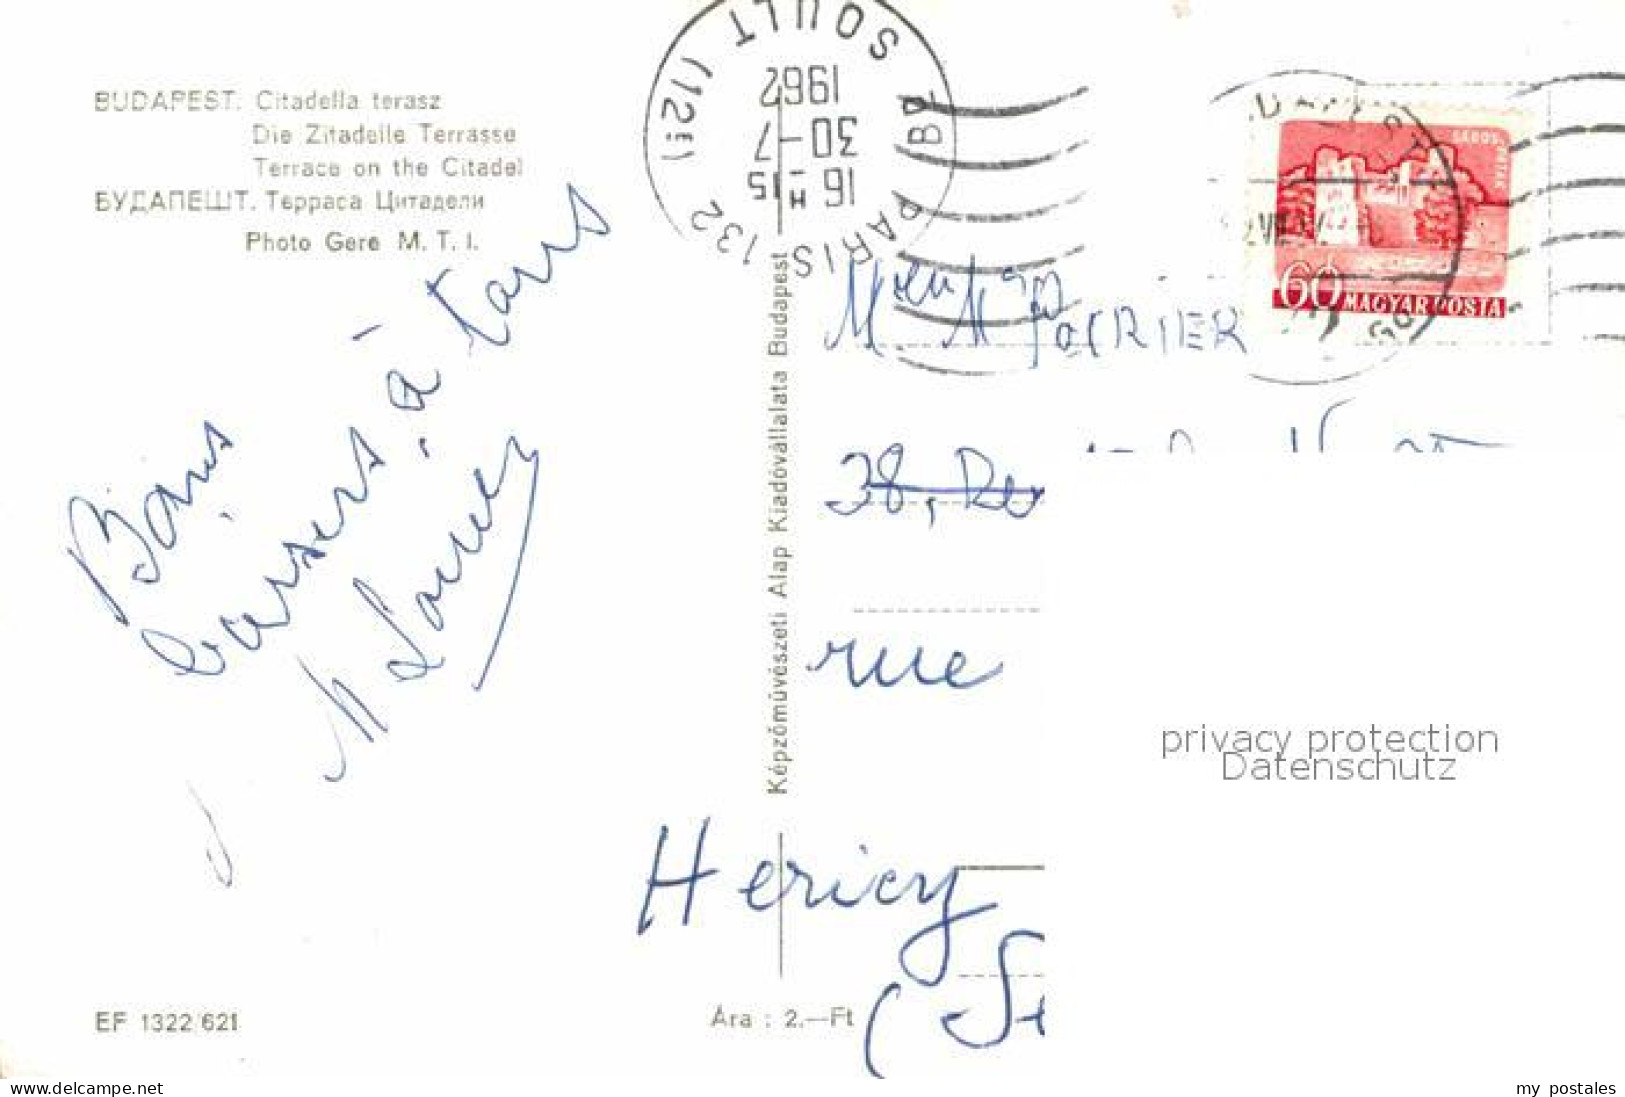 BUDAPEST. Citadella terasz
Die Zitadelle Terrasse
Terrace on the Citadel
БУДАПЕШТ. Терраса Цитадели
Photo Gere M. T. I.
Bons
baisers à tous
M
EF 1322/621
Képzőművészeti Alap Kiadóvállalata Budapest
Ára : 2.—Ft
PARIS 132 (12E)
BD SOULT
16 H 15
30-7
1962
60 MAGYAR POSTA
M
38,
rue
Hericy
(S
privacy protection
Datenschutz
www.delcampe.net
my_postales